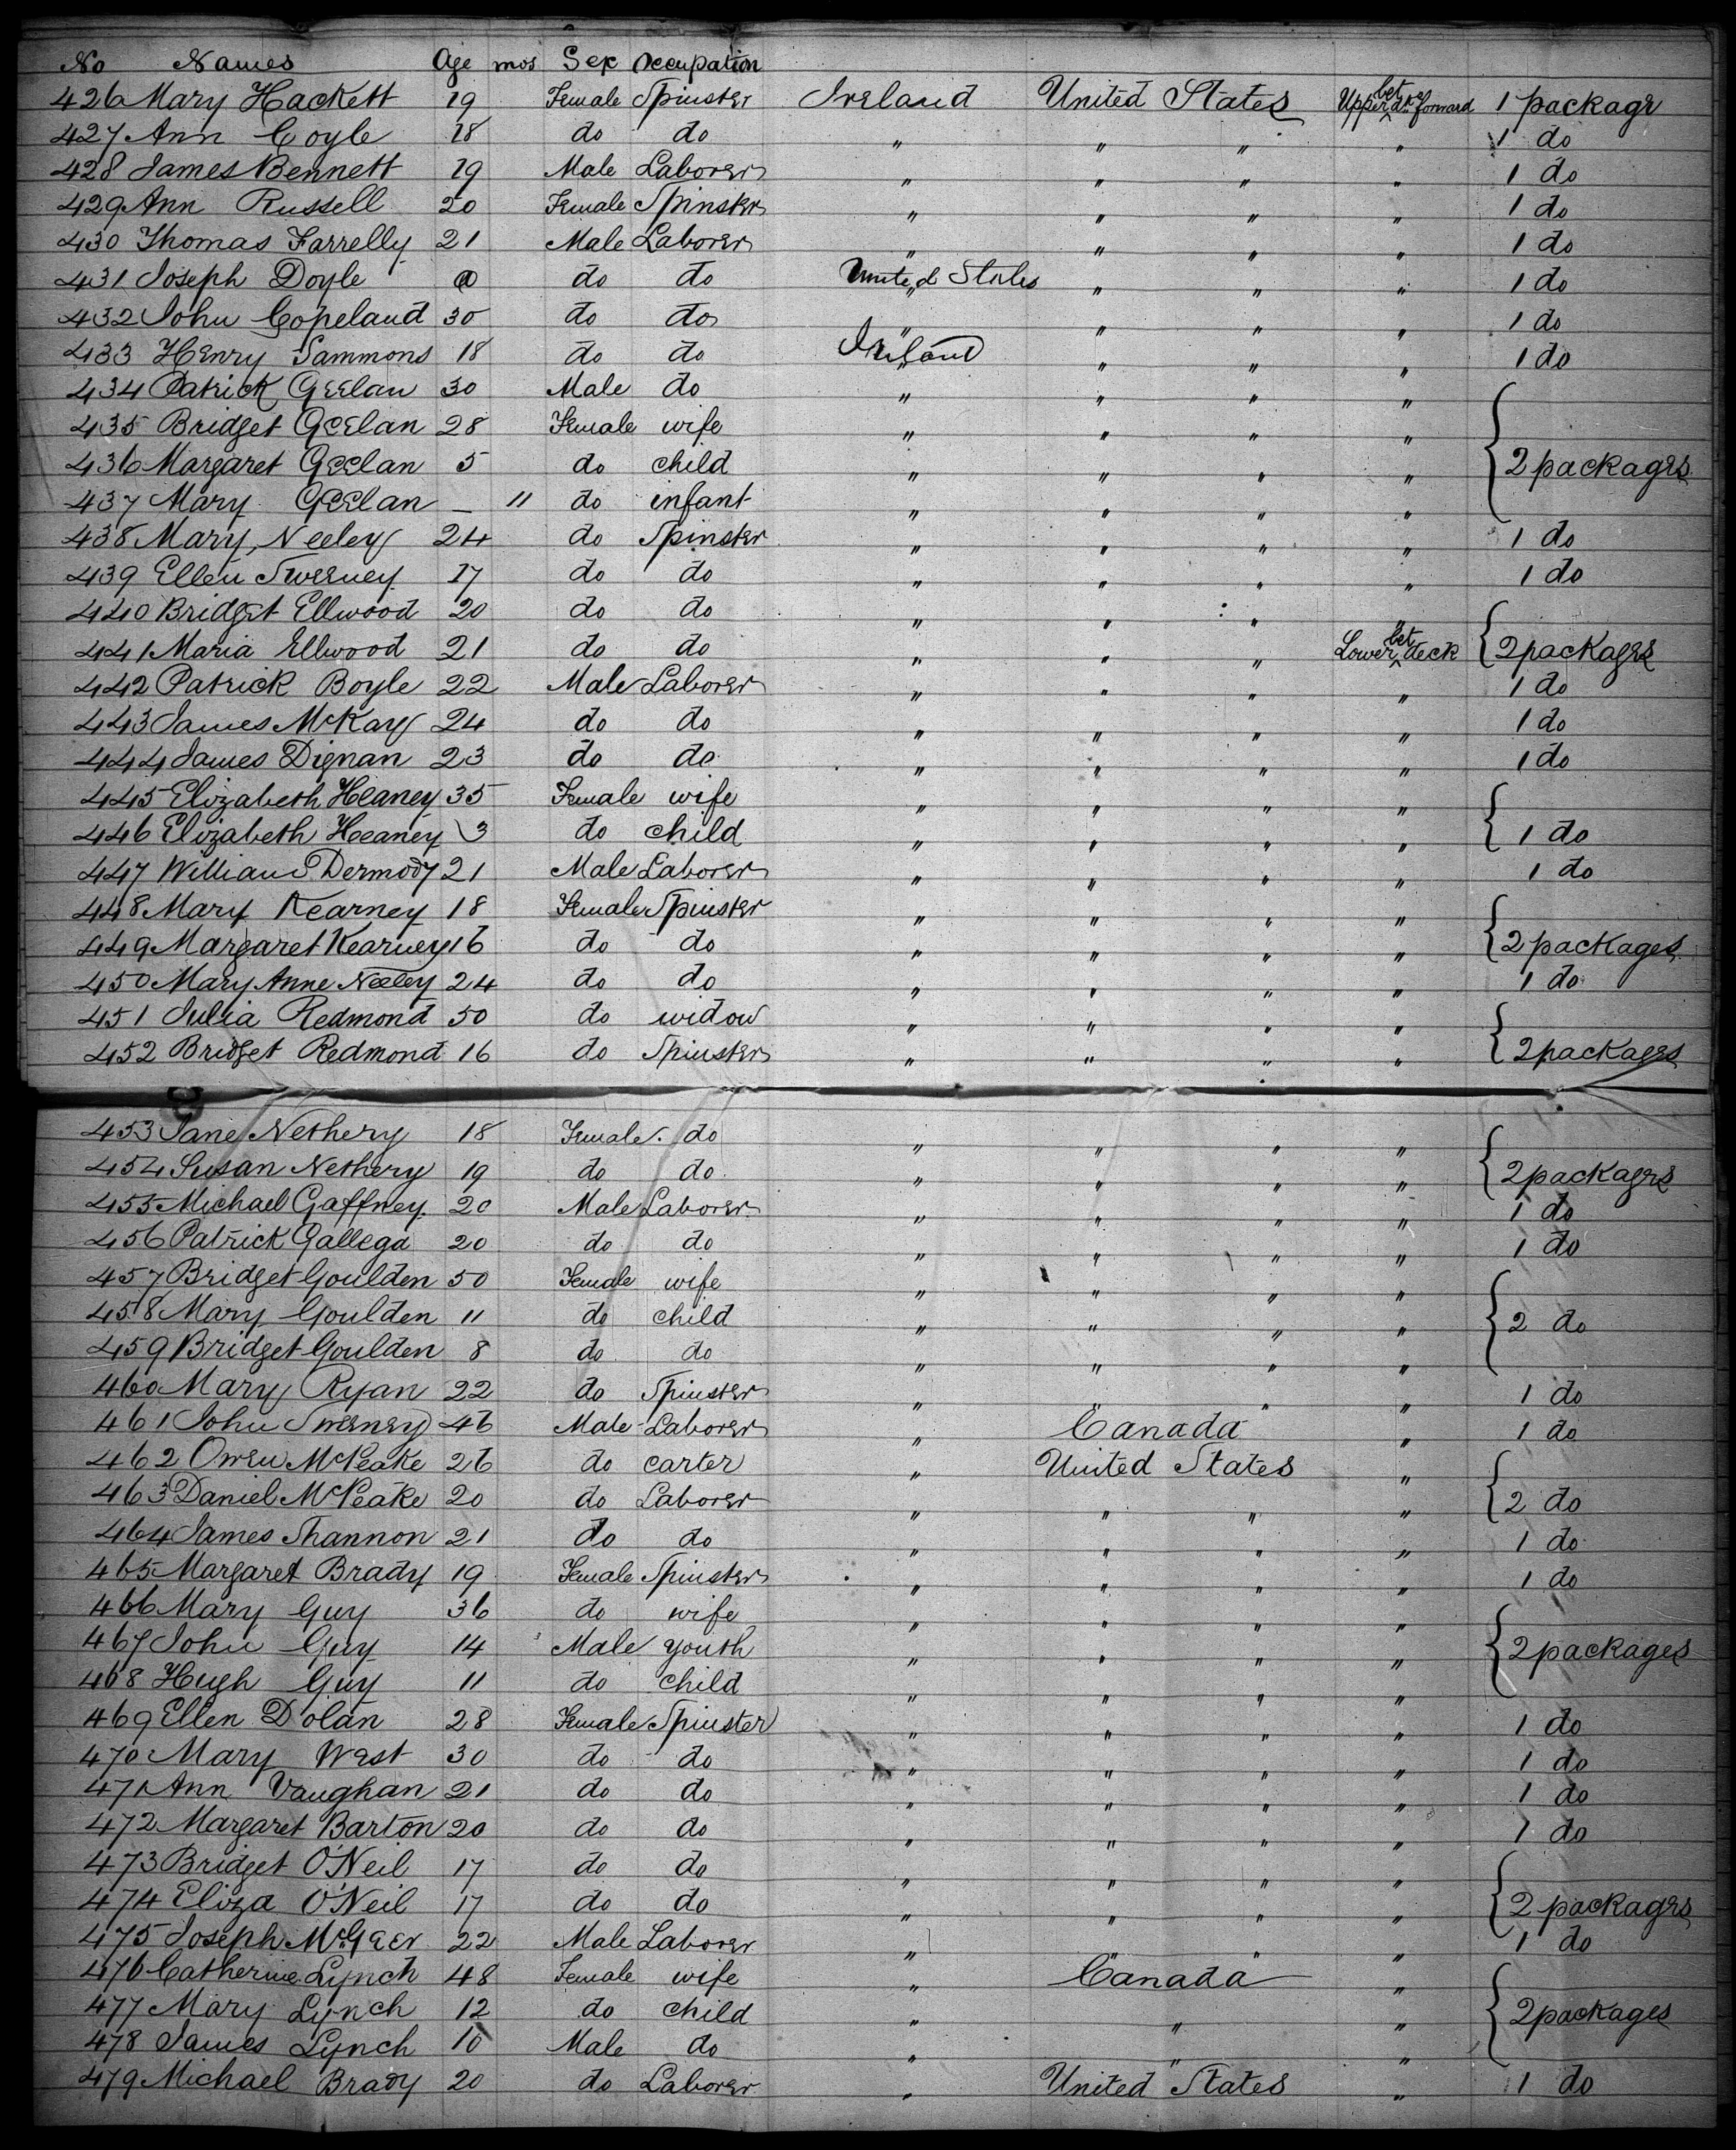 No Names Age mos Sex Occupation
426 Mary Hackett 19 Female Spinster Ireland United States Upper bet dks forward 1 package
427 Ann Coyle 18 do do " " " " 1 do
428 James Bennett 19 Male Laborer " " " " 1 do
429 Ann Russell 20 Female Spinster " " " " 1 do
430 Thomas Farrelly 21 Male Laborer " " " " 1 do
431 Joseph Doyle do do United States " " " 1 do
432 John Copeland 30 do do " " " " 1 do
433 Henry Sammons 18 do do Ireland " " " 1 do
434 Patrick Geelan 30 Male do " " " "
435 Bridget Geelan 28 Female wife " " " "
436 Margaret Geelan 5 do child " " " " 2 packages
437 Mary Geelan – 11 do infant " " " "
438 Mary Neeley 24 do Spinster " " " " 1 do
439 Ellen Sweeney 17 do do " " " " 1 do
440 Bridget Ellwood 20 do do " " " "
441 Maria Ellwood 21 do do " " " Lower bet deck 2 packages
442 Patrick Boyle 22 Male Laborer " " " " 1 do
443 James McKay 24 do do " " " " 1 do
444 James Dignan 23 do do " " " " 1 do
445 Elizabeth Heaney 35 Female wife " " " "
446 Elizabeth Heaney 3 do child " " " " 1 do
447 William Dermody 21 Male Laborer " " " " 1 do
448 Mary Kearney 18 Female Spinster " " " "
449 Margaret Kearney 16 do do " " " " 2 packages
450 Mary Anne Neeley 24 do do " " " " 1 do
451 Julia Redmond 50 do widow " " " "
452 Bridget Redmond 16 do Spinster " " " " 2 packages
453 Jane Nethery 18 Female do " " " "
454 Susan Nethery 19 do do " " " " 2 packages
455 Michael Gaffney 20 Male Laborer " " " " 1 do
456 Patrick Gallega 20 do do " " " " 1 do
457 Bridget Goulden 50 Female wife " " " "
458 Mary Goulden 11 do child " " " " 2 do
459 Bridget Goulden 8 do do " " " "
460 Mary Ryan 22 do Spinster " " " " 1 do
461 John Sweeney 46 Male Laborer " Canada " 1 do
462 Owen McPeake 26 do carter " United States "
463 Daniel McPeake 20 do Laborer " " " " 2 do
464 James Shannon 21 do do " " " " 1 do
465 Margaret Brady 19 Female Spinster " " " " 1 do
466 Mary Guy 36 do wife " " " "
467 John Guy 14 Male youth " " " " 2 packages
468 Hugh Guy 11 do child " " " "
469 Ellen Dolan 28 Female Spinster " " " " 1 do
470 Mary West 30 do do " " " " 1 do
471 Ann Vaughan 21 do do " " " " 1 do
472 Margaret Barton 20 do do " " " " 1 do
473 Bridget O'Neil 17 do do " " " "
474 Eliza O'Neil 17 do do " " " " 2 packages
475 Joseph McGeer 22 Male Laborer " " " " 1 do
476 Catherine Lynch 48 Female wife " Canada "
477 Mary Lynch 12 do child " " " 2 packages
478 James Lynch 10 Male do " " "
479 Michael Brady 20 do Laborer " United States " 1 do